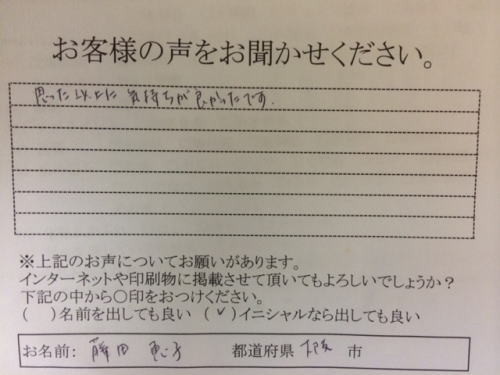 お客様の声をお聞かせください。
思った以上に気持ちが良かったです。
※上記のお声についてお願いがあります。
インターネットや印刷物に掲載させて頂いてもよろしいでしょうか?
下記の中から〇印をおつけください。
( )名前を出しても良い (✓)イニシャルなら出しても良い
お名前: 藤田 都道府県 大阪 市